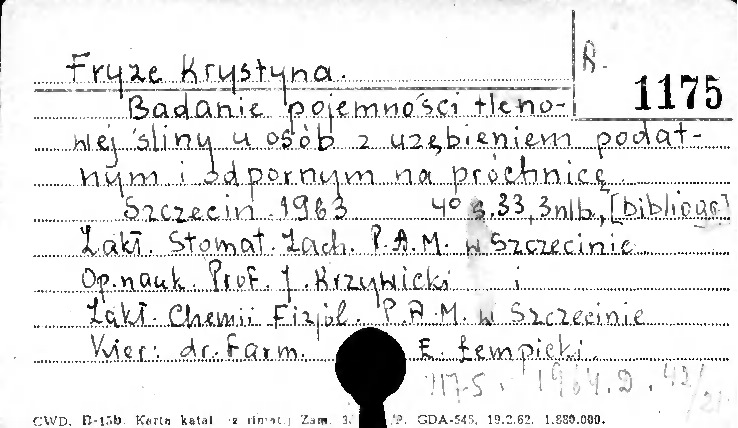 Fryze Krystyna.
R.
1175
Badanie pojemności tleno-
wej śliny u osób z uzębieniem podat-
nym i odpornym na próchnicę.
Szczecin 1963 4° s.33, 3nlb., [bibliogr]
Zakł. Stomat. Zach. P.A.M. w Szczecinie
Op. nauk. Prof. J. Krzywicki i
Zakł. Chemii Fizjol. P.A.M. w Szczecinie
Kier: dr. farm. E. Łempicki.
1964.D. 43/21
CWD, Karta katal Zam. GDA-545, 19.2.62, 1.880.000.